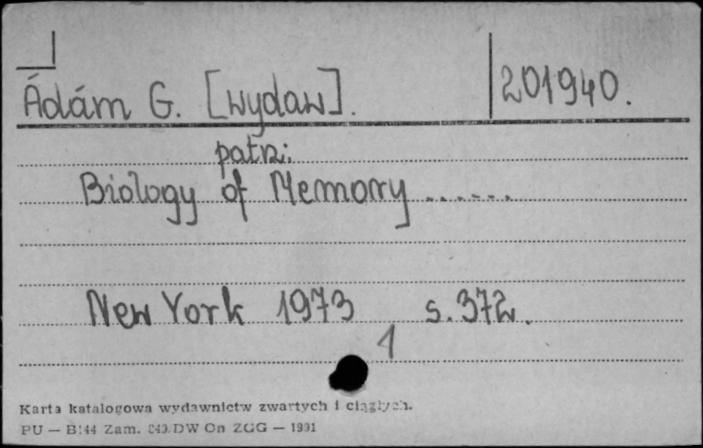 Ádám G. [wydaw]. 201940.
patrz:
Biology of Memory ......
New York 1973 s. 372.
1
Karta katalogowa wydawnictw zwartych i ciągłych.
PU — B144 Zam. DW On ZGG —